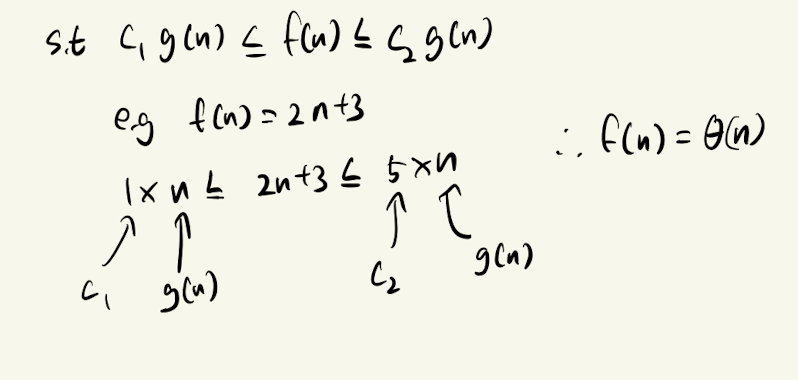 s.t c₁ g(n) ≤ f(n) ≤ c₂ g(n)
e.g f(n) = 2n+3
∴ f(n) = θ(n)
1 × n ≤ 2n+3 ≤ 5 × n
c₁ g(n) c₂ g(n)